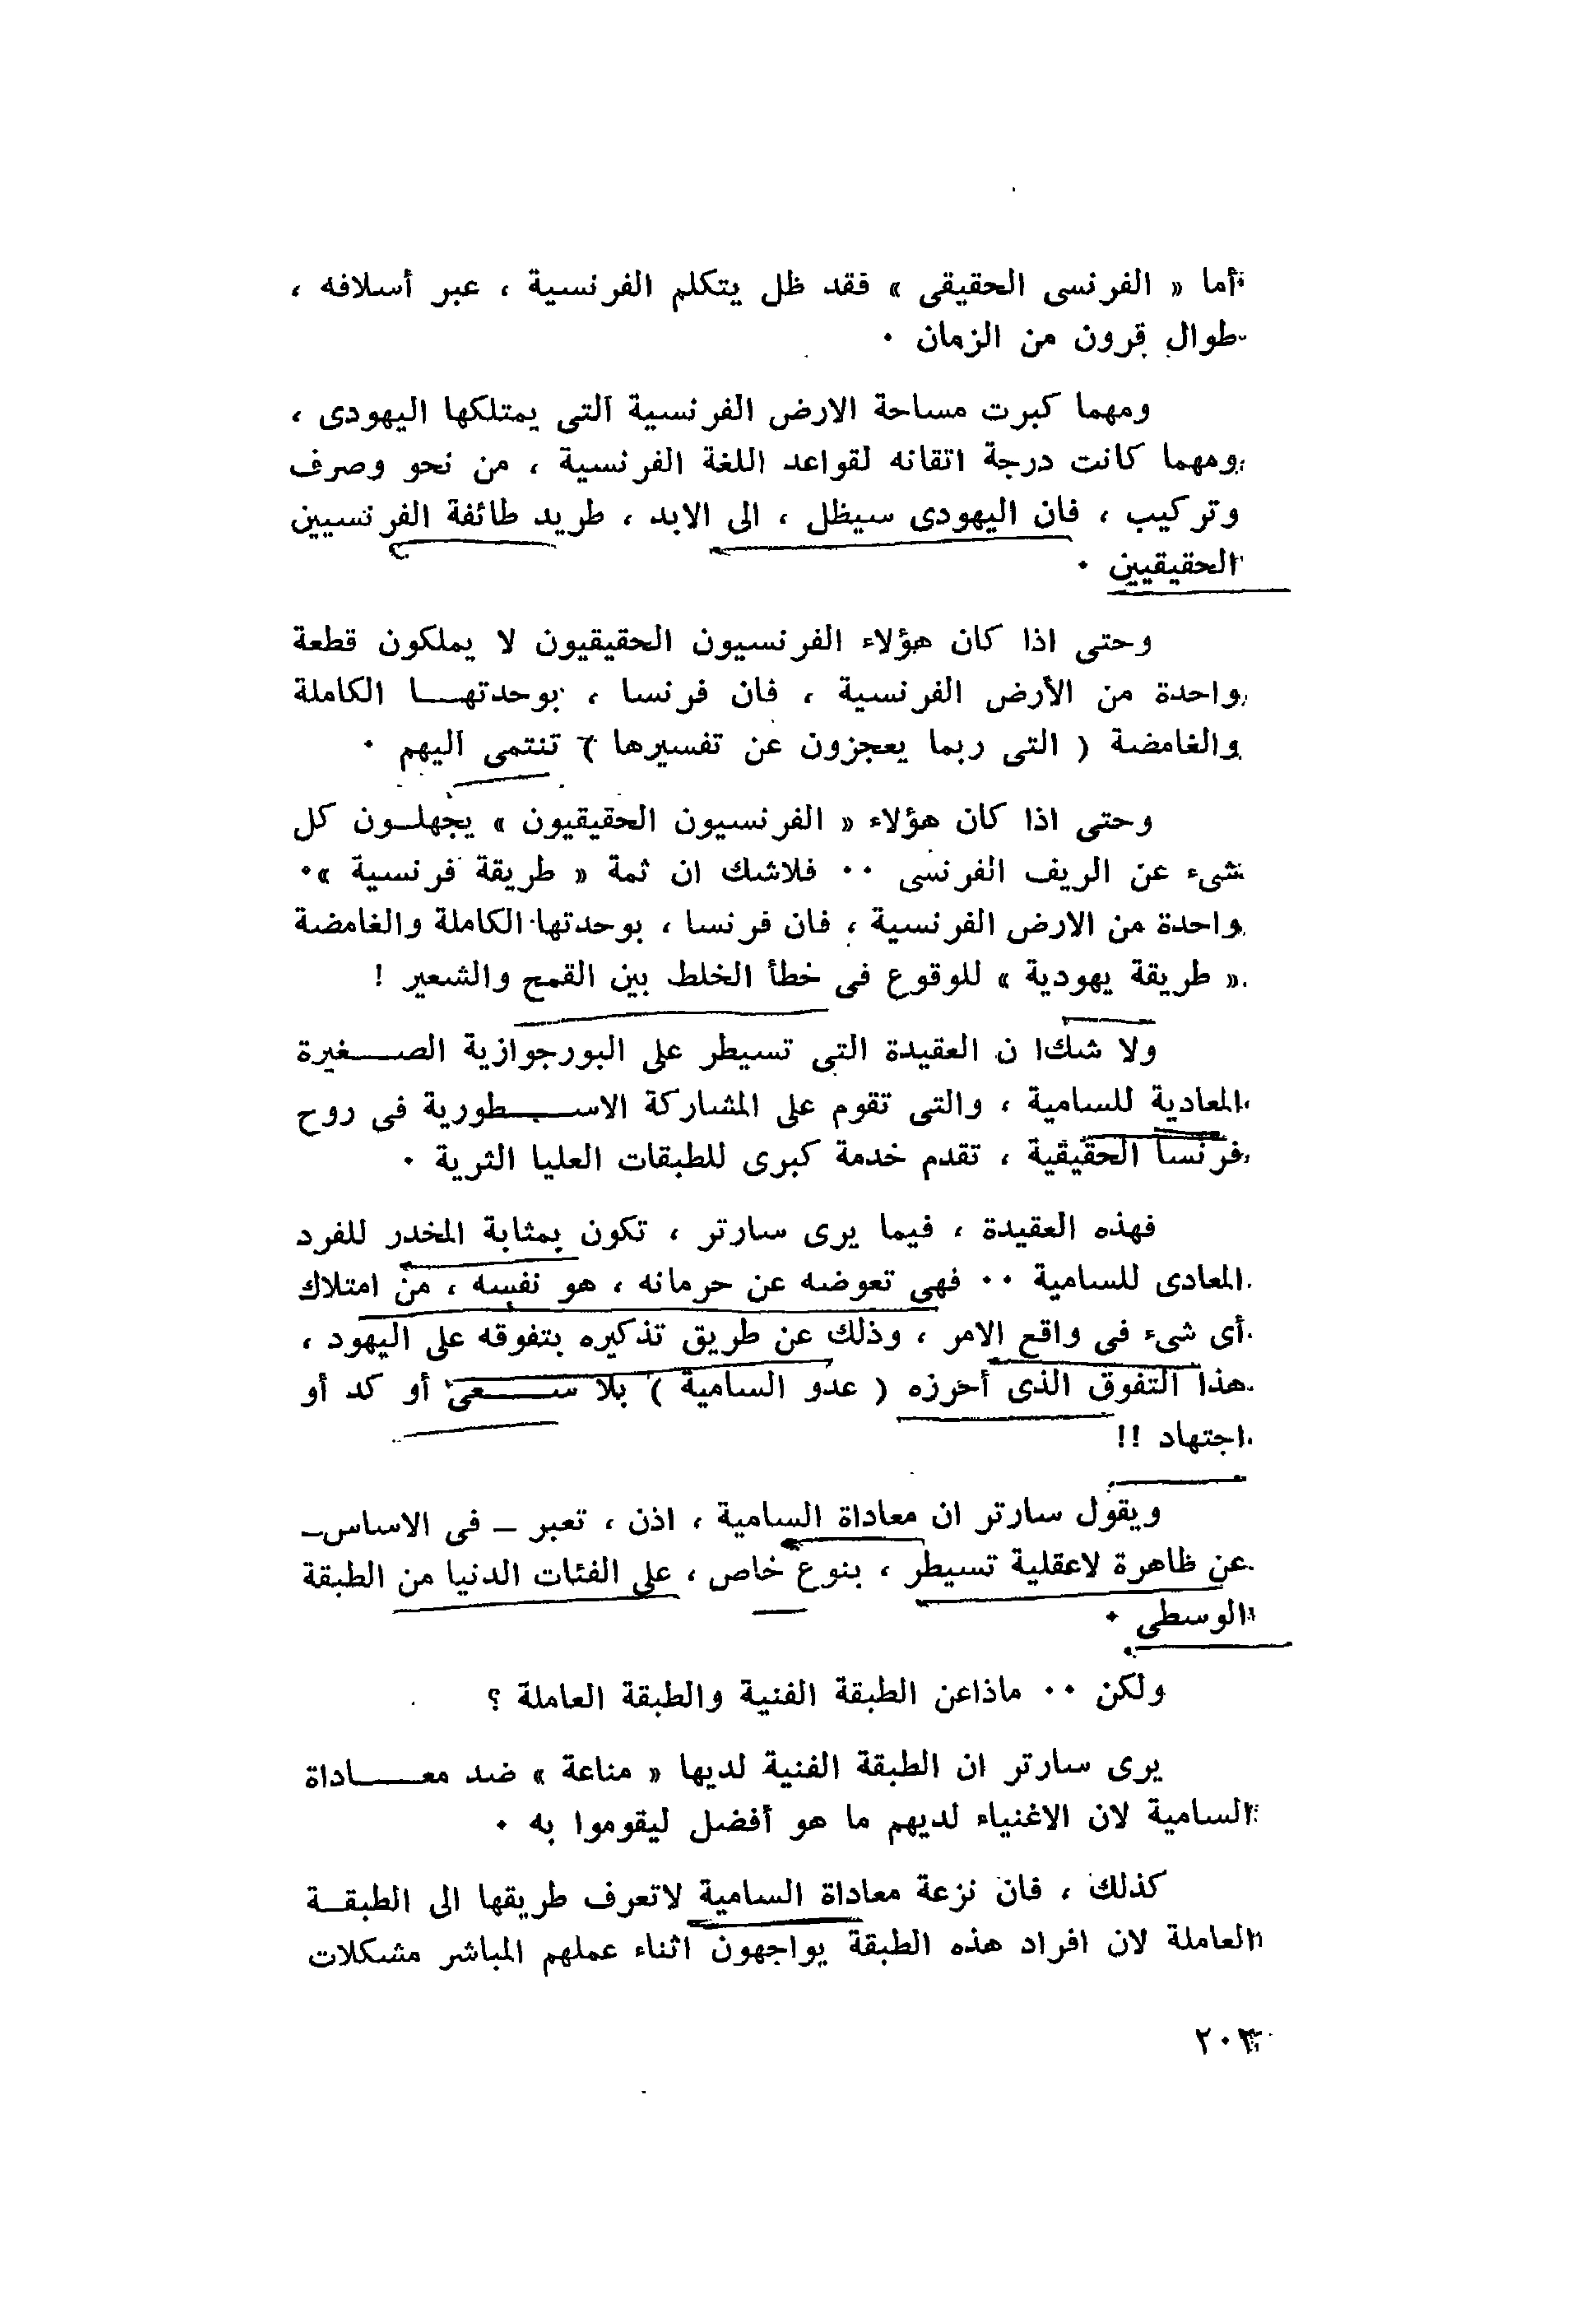 أما « الفرنسى الحقيقى » فقد ظل يتكلم الفرنسية ، عبر أسلافه ،
طوال قرون من الزمان ٠
ومهما كبرت مساحة الارض الفرنسية التى يمتلكها اليهودى ،
ومهما كانت درجة اتقانه لقواعد اللغة الفرنسية ، من نحو وصرف
وتركيب ، فان اليهودى سيظل ، الى الابد ، طريد طائفة الفرنسيين
الحقيقيين ٠
وحتى اذا كان هؤلاء الفرنسيون الحقيقيون لا يملكون قطعة
واحدة من الأرض الفرنسية ، فان فرنسا ، بوحدتهـــا الكاملة
والغامضة ( التى ربما يعجزون عن تفسيرها ) تنتمى اليهم ٠
وحتى اذا كان هؤلاء « الفرنسيون الحقيقيون » يجهلــون كل
شىء عن الريف الفرنسى ٠٠ فلاشك ان ثمة « طريقة فرنسية »٠
واحدة من الارض الفرنسية ، فان فرنسا ، بوحدتها الكاملة والغامضة
« طريقة يهودية » للوقوع فى خطأ الخلط بين القمح والشعير !
ولا شكا ن العقيدة التى تسيطر على البورجوازية الصــــغيرة
المعادية للسامية ، والتى تقوم على المشاركة الاســــطورية فى روح
فرنسا الحقيقية ، تقدم خدمة كبرى للطبقات العليا الثرية ٠
فهذه العقيدة ، فيما يرى سارتر ، تكون بمثابة المخدر للفرد
المعادى للسامية ٠٠ فهى تعوضه عن حرمانه ، هو نفسه ، من امتلاك
أى شىء فى واقع الامر ، وذلك عن طريق تذكيره بتفوقه على اليهود ،
هذا التفوق الذى أحرزه ( عدو السامية ) بلا ســــعى أو كد أو
اجتهاد !!
ويقول سارتر ان معاداة السامية ، اذن ، تعبر ــ فى الاساس ــ
عن ظاهرة لاعقلية تسيطر ، بنوع خاص ، على الفئات الدنيا من الطبقة
الوسطى ٠
ولكن ٠٠ ماذاعن الطبقة الفنية والطبقة العاملة ؟
يرى سارتر ان الطبقة الفنية لديها « مناعة » ضد معــــاداة
السامية لان الاغنياء لديهم ما هو أفضل ليقوموا به ٠
كذلك ، فان نزعة معاداة السامية لاتعرف طريقها الى الطبقــة
العاملة لان افراد هذه الطبقة يواجهون اثناء عملهم المباشر مشكلات